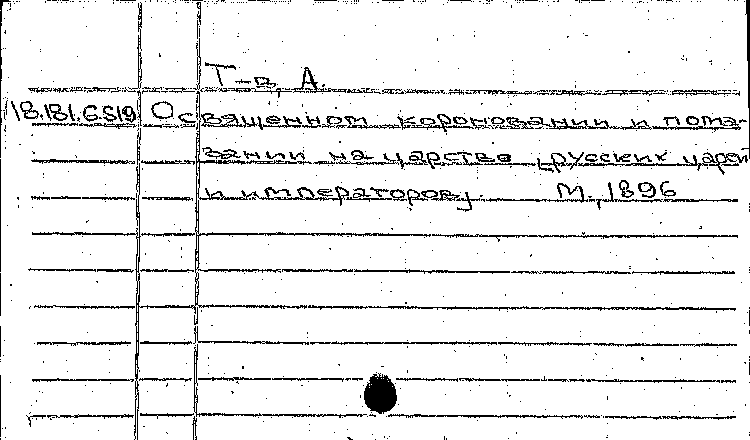 Т-в, А.
18.181.6.519 О священном короновании и пома-
зании на царство [русских царей
и императоров]. М., 1896